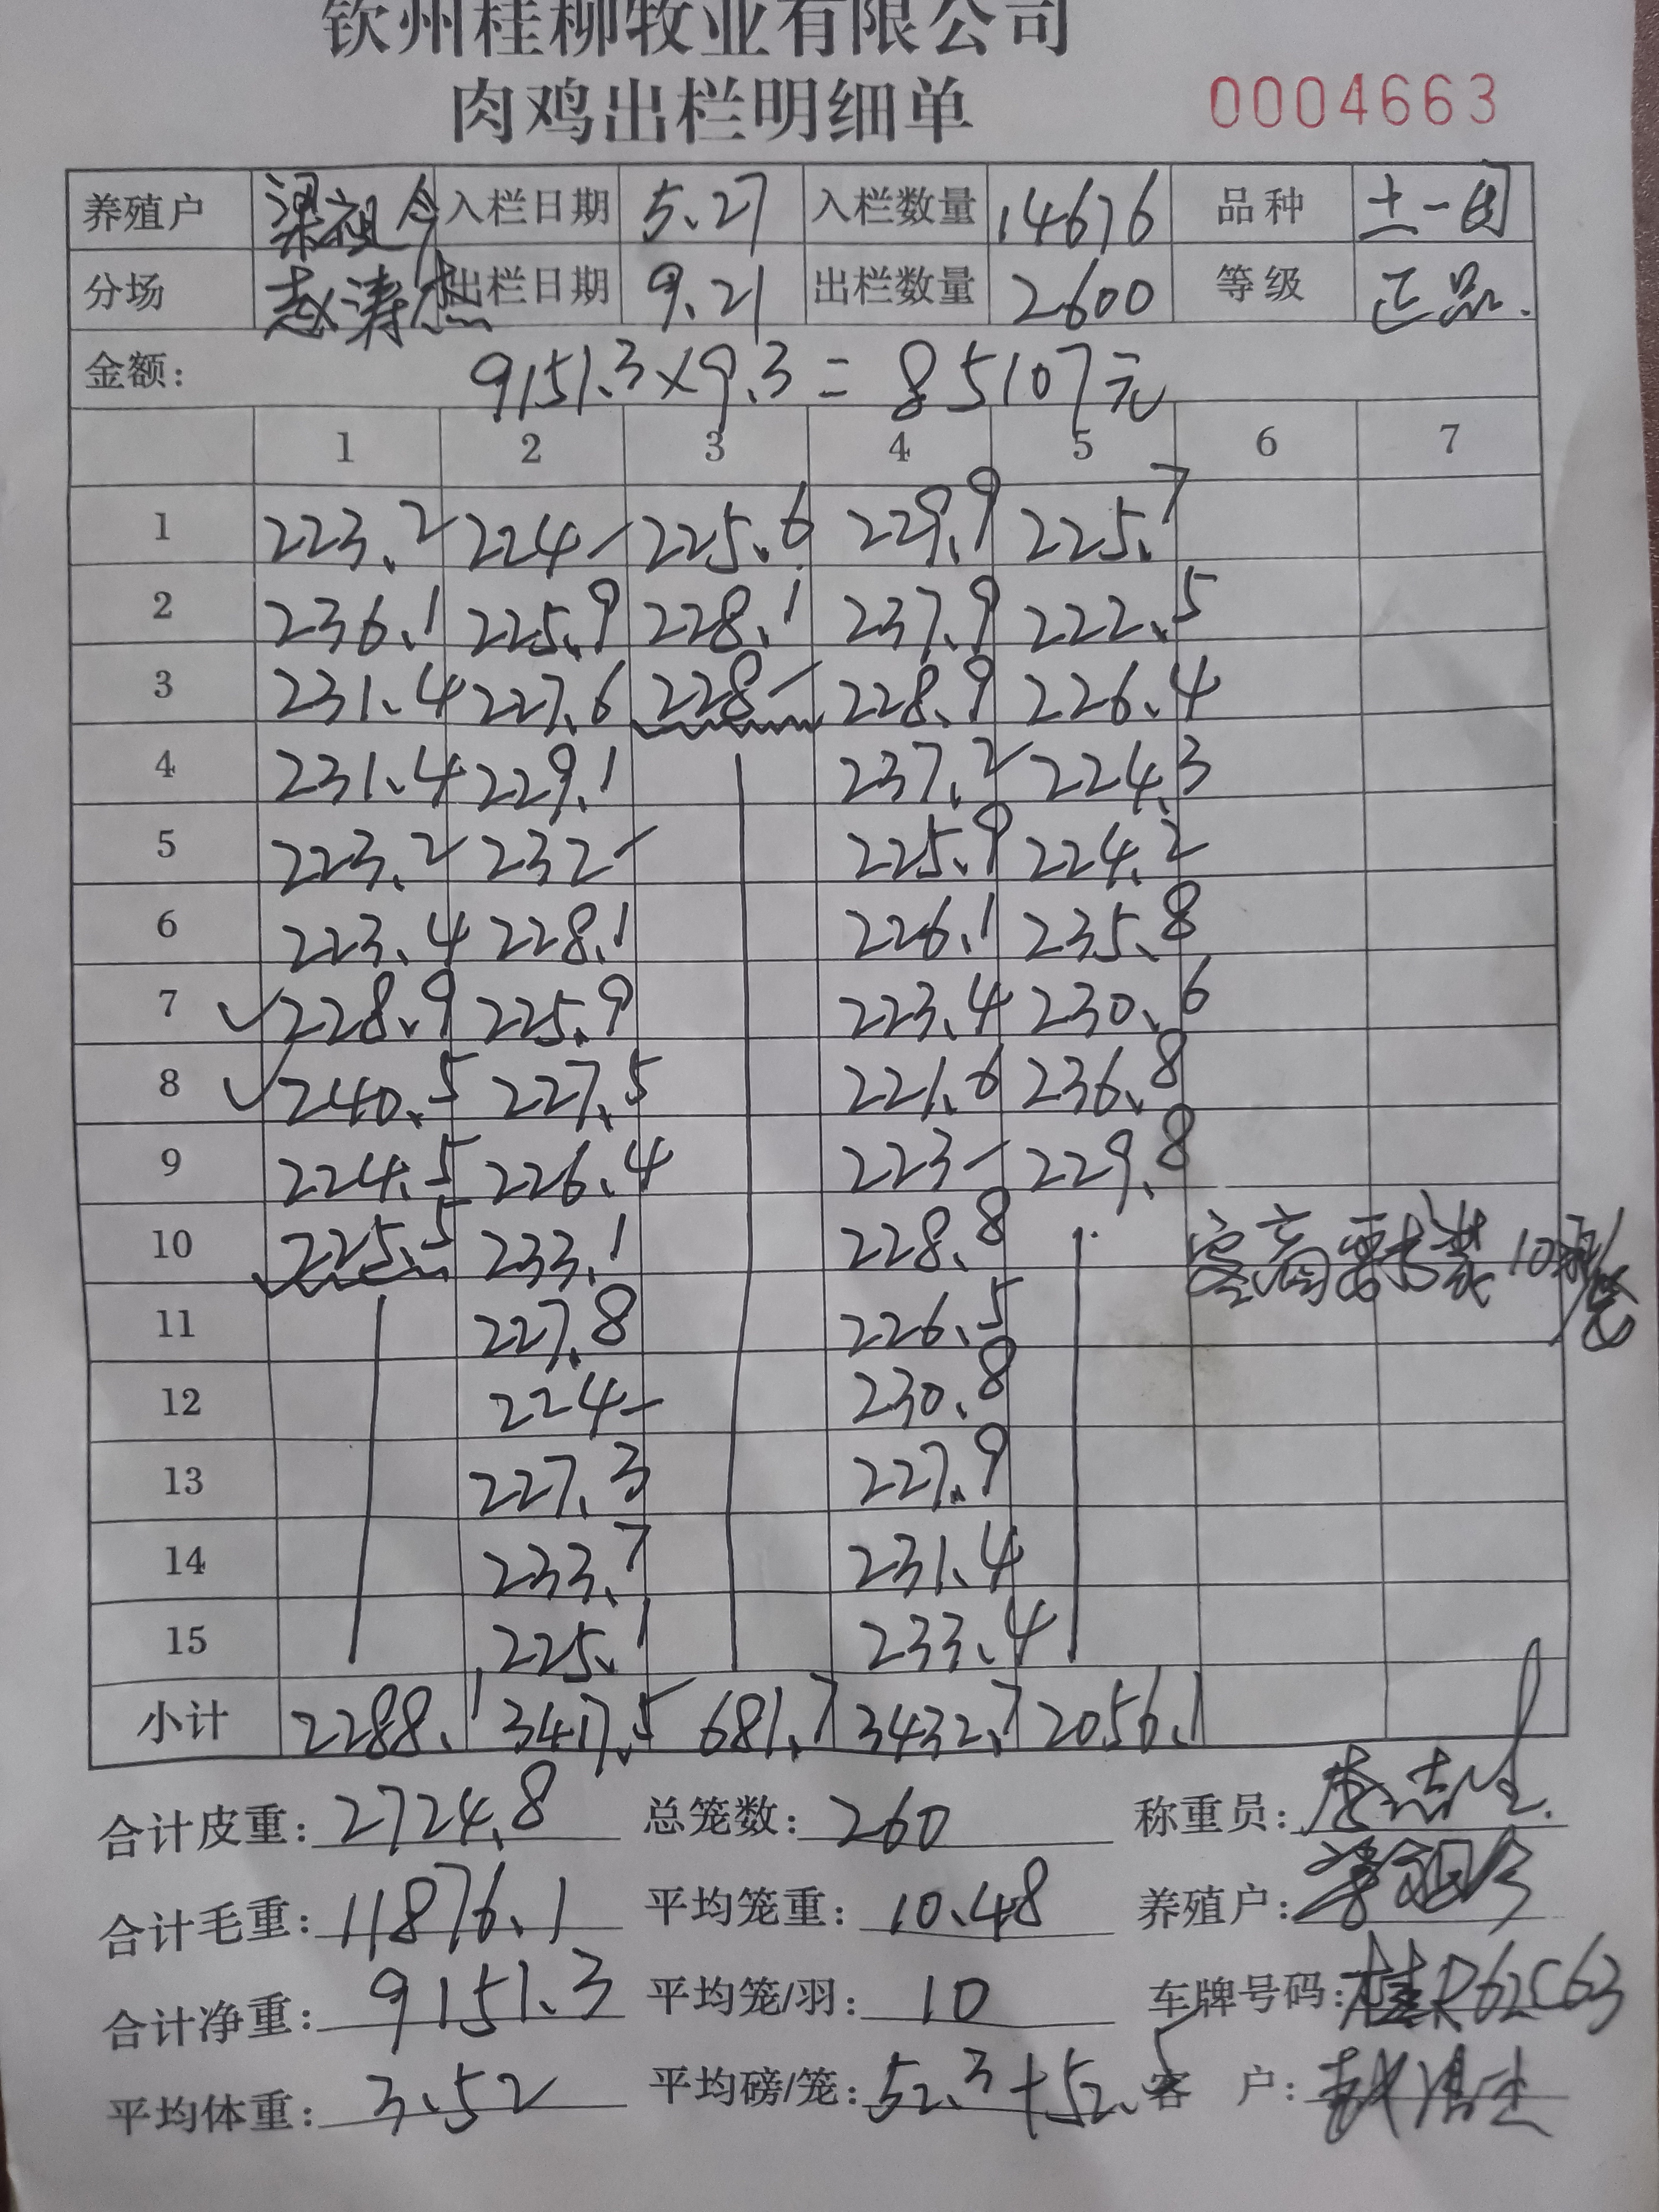 钦州桂柳牧业有限公司
肉鸡出栏明细单 0004663
养殖户 梁祖今 入栏日期 5.27 入栏数量 14676 品种 土一
分场 赵涛杰 出栏日期 9.21 出栏数量 2600 等级 正品.
金额: 9151.3×9.3=85107元
1 2 3 4 5 6 7
1 223.2 224- 225.6 229.9 225.7
2 236.1 225.9 228.1 237.9 222.5
3 231.4 227.6 228- 228.9 226.4
4 231.4 229.1 237.2 224.3
5 223.2 232- 225.9 224.2
6 223.4 228.1 226.1 235.8
7 ✓228.9 225.9 223.4 230.6
8 ✓240.5 227.5 221.6 236.8
9 224.5 226.4 223- 229.8
10 225.5 233.1 228.8 客商要求装10羽/笼
11 227.8 226.5
12 224- 230.8
13 227.3 227.9
14 233.7 231.4
15 225.1 233.4
小计 2288.1 3417.5 681.7 3432.7 2056.1
合计皮重: 2724.8 总笼数: 260 称重员:
合计毛重: 11876.1 平均笼重: 10.48 养殖户:
合计净重: 9151.3 平均笼/羽: 10 车牌号码: 桂R62C63
平均体重: 3.52 平均磅/笼: 52.3+52.5 客 户: